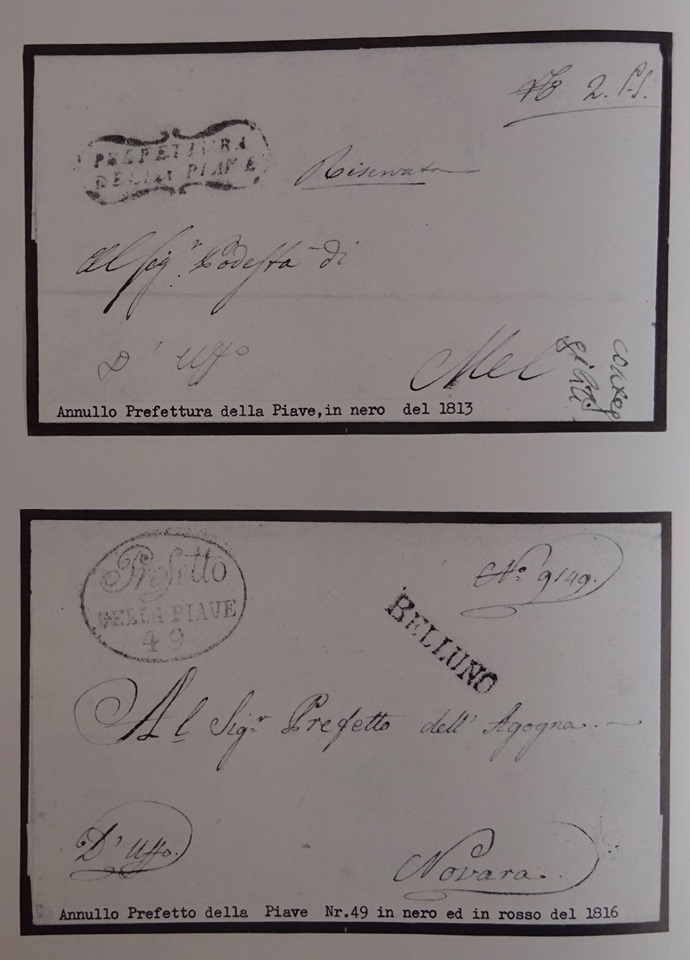 N° 2. P.S.
PREFETTURA
DELLA PIAVE
Riservata
Al Sig.r Podestà di
D' Uff.o
Mel
Annullo Prefettura della Piave, in nero del 1813
Prefetto
DELLA PIAVE
49
N.° 9149.
BELLUNO
Al Sig.r Prefetto dell' Agogna.
D' Uffo.
Novara.
Annullo Prefetto della Piave Nr.49 in nero ed in rosso del 1816